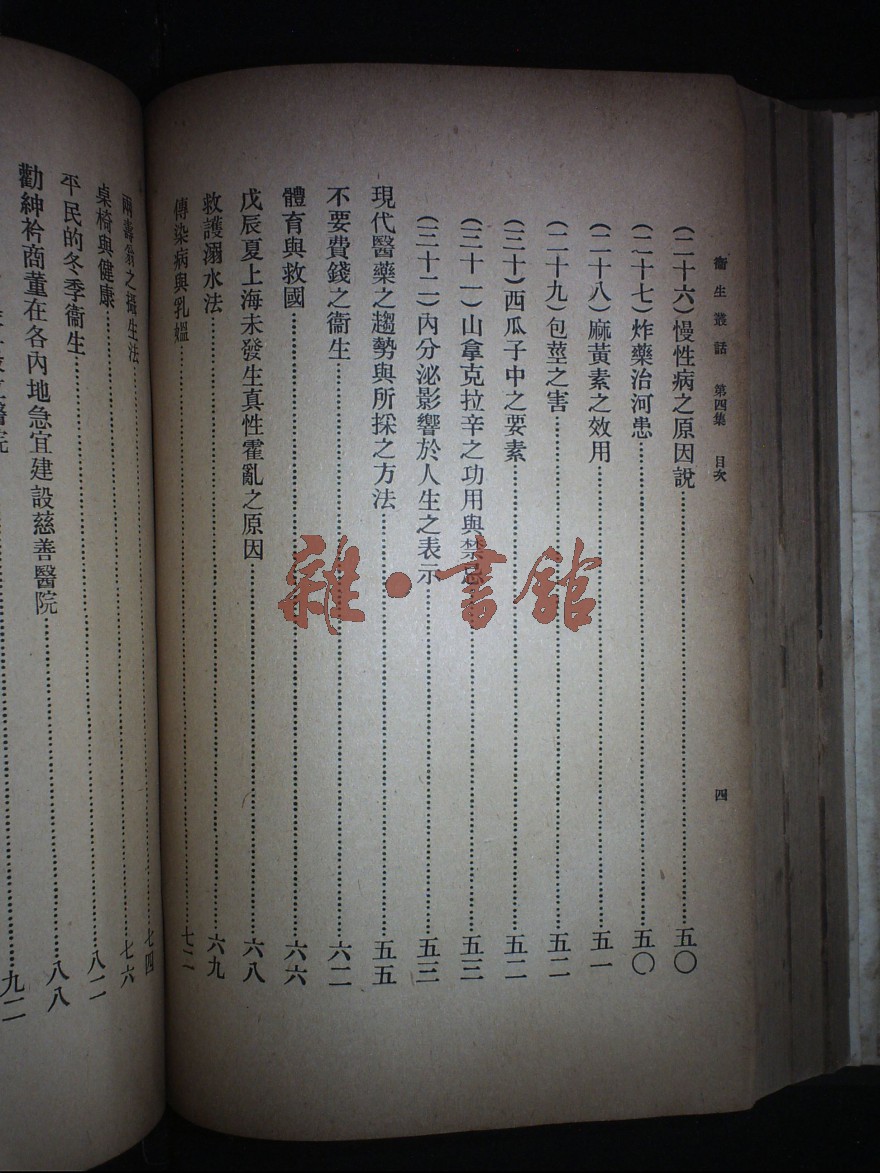 衞生叢話 第四集 目次 四
(二十六)慢性病之原因說……五〇
(二十七)炸藥治河患……五〇
(二十八)麻黃素之效用……五一
(二十九)包莖之害……五二
(三十)西瓜子中之要素……五二
(三十一)山拿克拉辛之功用與禁忌……五三
(三十二)內分泌影響於人生之表示……五三
現代醫藥之趨勢與所採之方法……五五
不要費錢之衞生……六二
體育與救國……六六
戊辰夏上海未發生真性霍亂之原因……六八
救護溺水法……六九
傳染病與乳媼……七二
兩壽翁之攝生法……七四
桌椅與健康……七六
平民的冬季衞生……八二
勸紳衿商董在各內地急宜建設慈善醫院……八八
醫院……九二
雜·書館